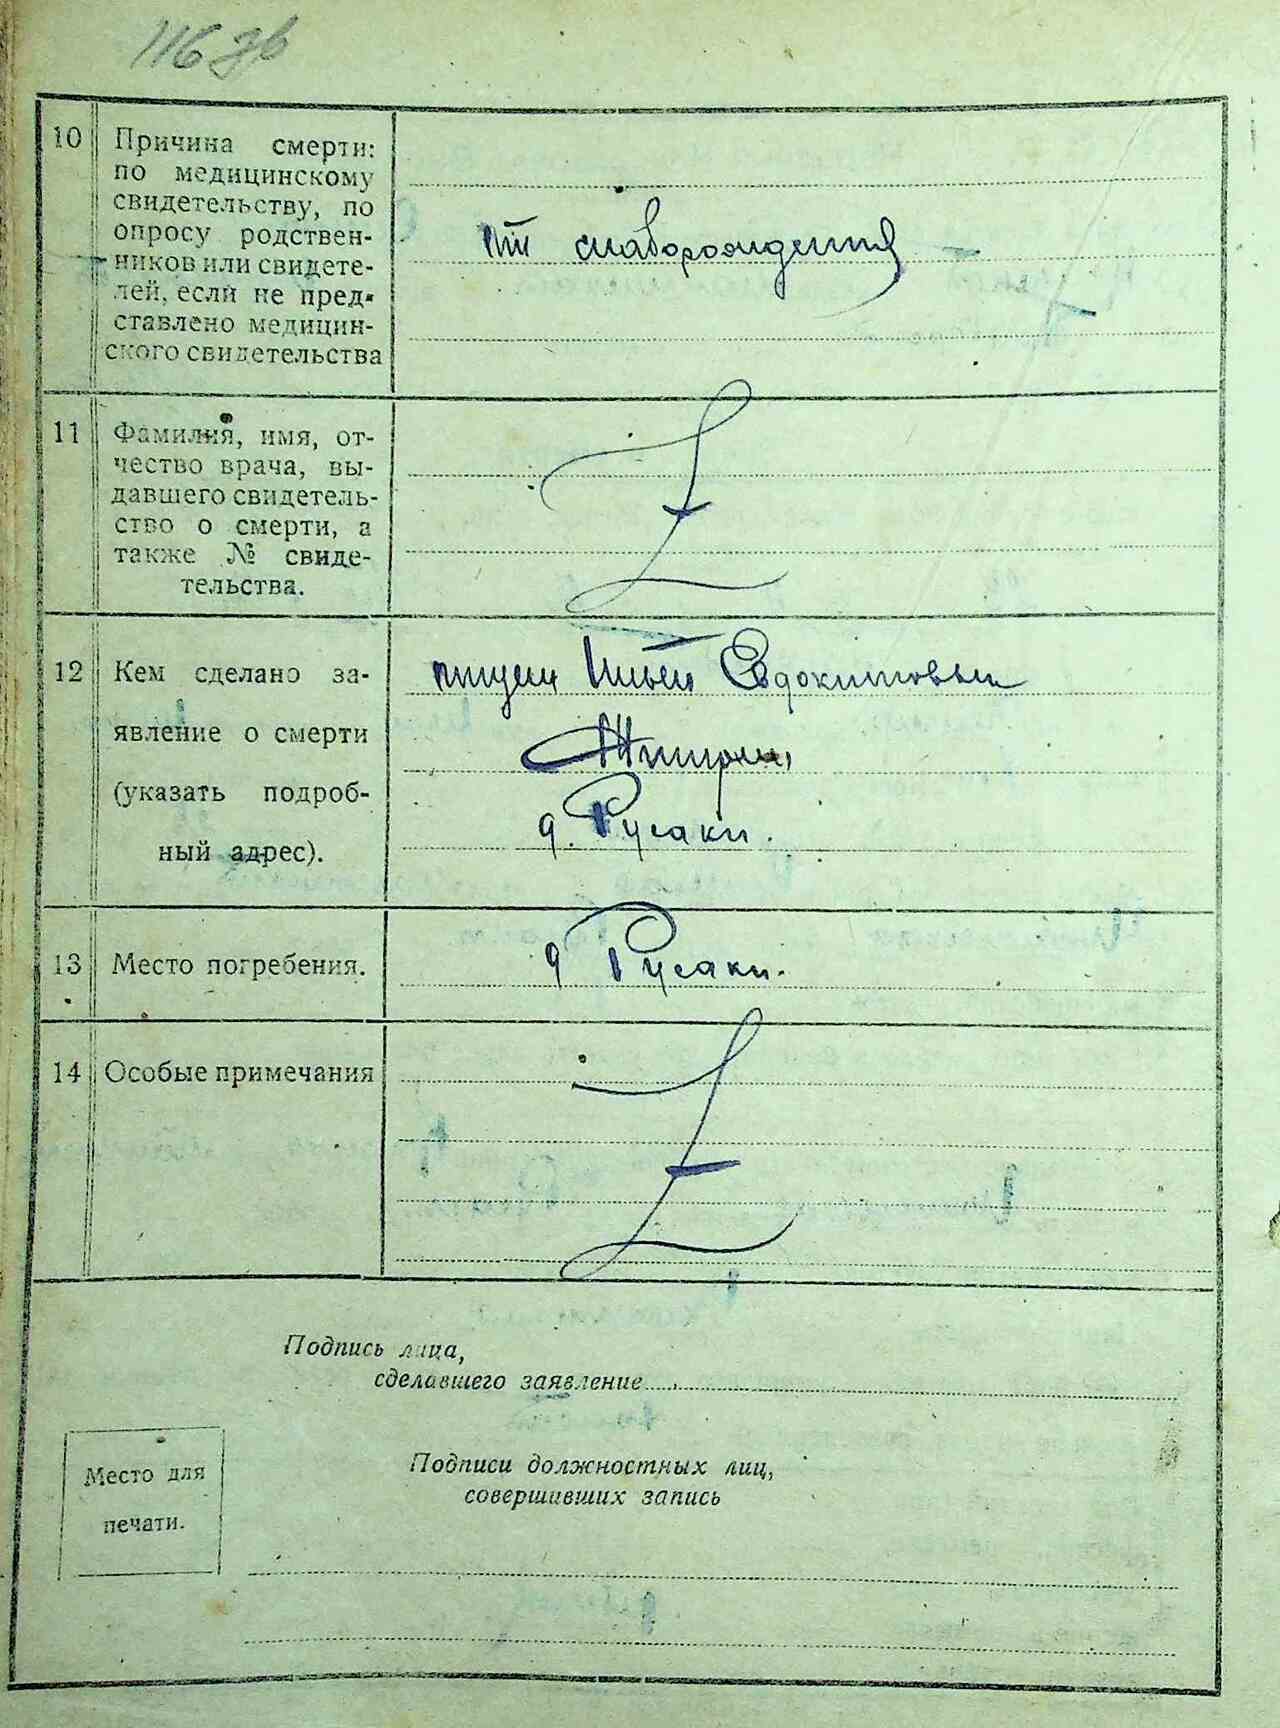 116
10 Причина смерти:
по медицинскому
свидетельству, по
опросу родствен-
ников или свидете-
лей, если не пред-
ставлено медицин-
ского свидетельства
от слаборождения
11 Фамилия, имя, от-
чество врача, вы-
давшего свидетель-
ство о смерти, а
также № свиде-
тельства.
12 Кем сделано за-
явление о смерти
(указать подроб-
ный адрес).
отцем Ильей Евдокимовым
д. Русаки.
13 Место погребения.
д Русаки.
14 Особые примечания
Подпись лица,
сделавшего заявление
Место для
печати.
Подписи должностных лиц,
совершивших запись